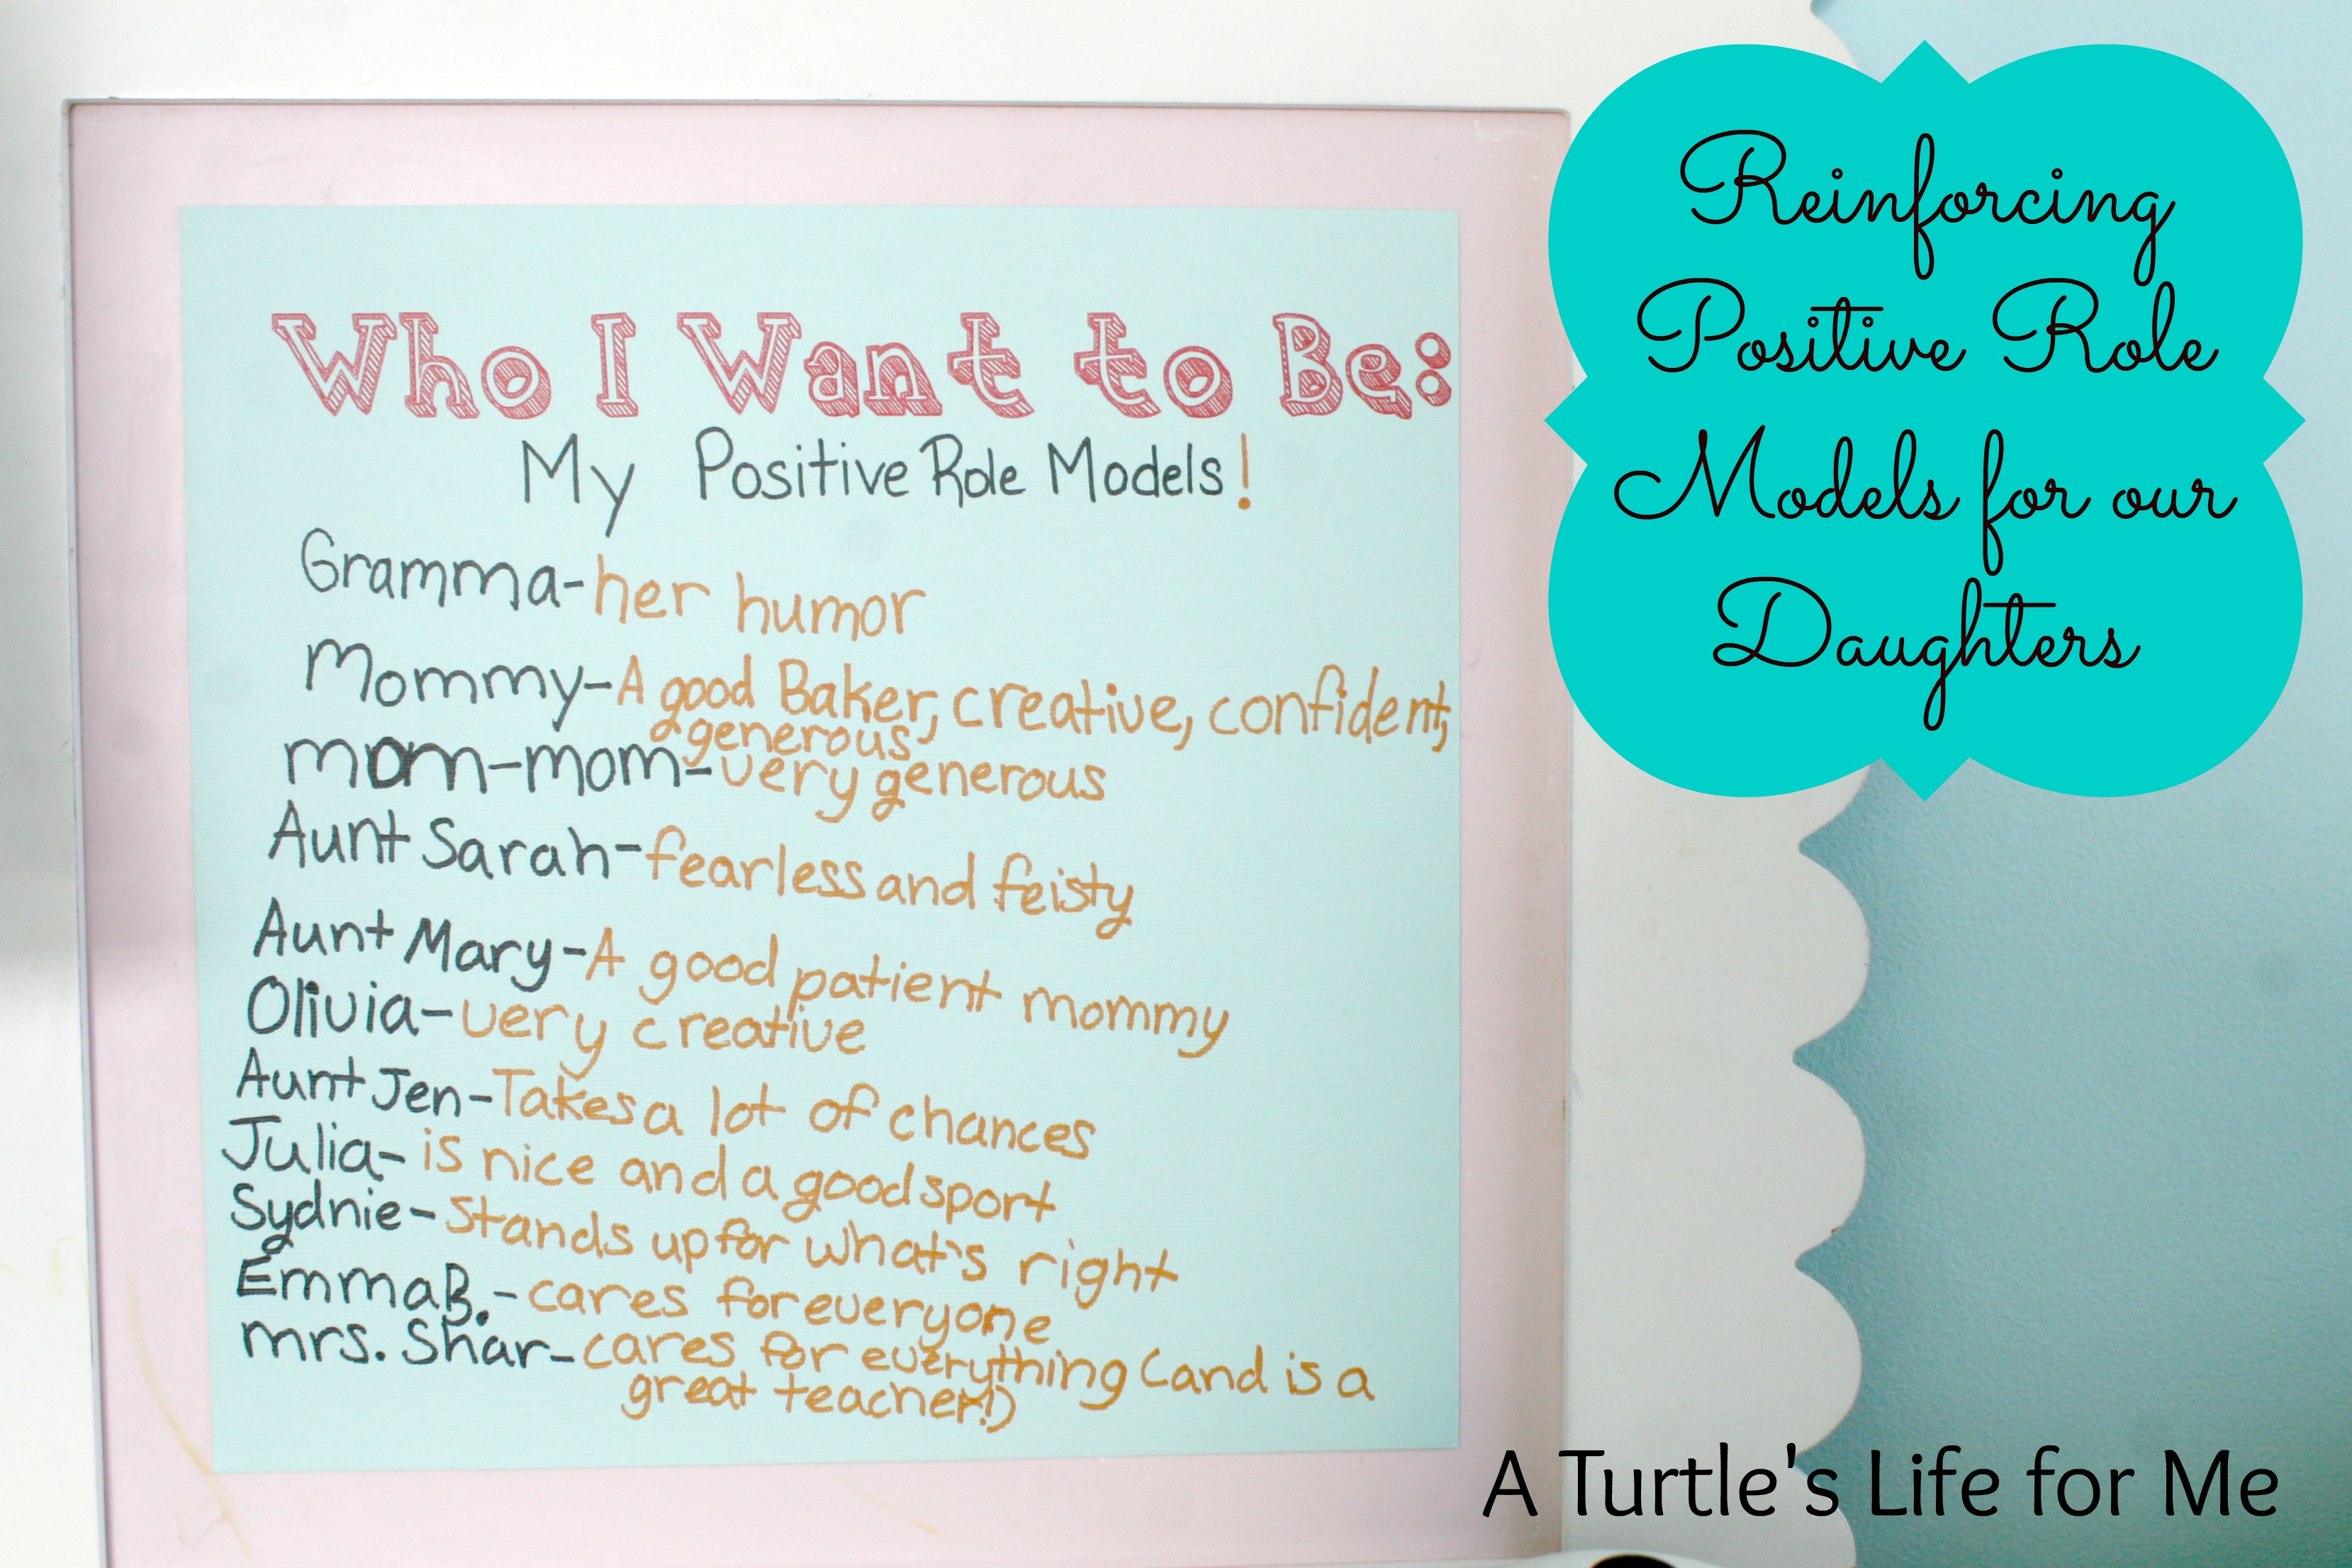 Who I Want to Be:
My Positive Role Models!
Gramma-her humor
Mommy-A good Baker, creative, confident,
& generous
mom-mom-very generous
Aunt Sarah-fearless and feisty
Aunt Mary-A good patient mommy
Olivia-very creative
Aunt Jen-Takes a lot of chances
Julia-is nice and a good sport
Sydnie-Stands up for what's right
Emma B.-cares for everyone
mrs. Shar-cares for everything (and is a
great teacher!)
Reinforcing
Positive Role
Models for our
Daughters
A Turtle's Life for Me